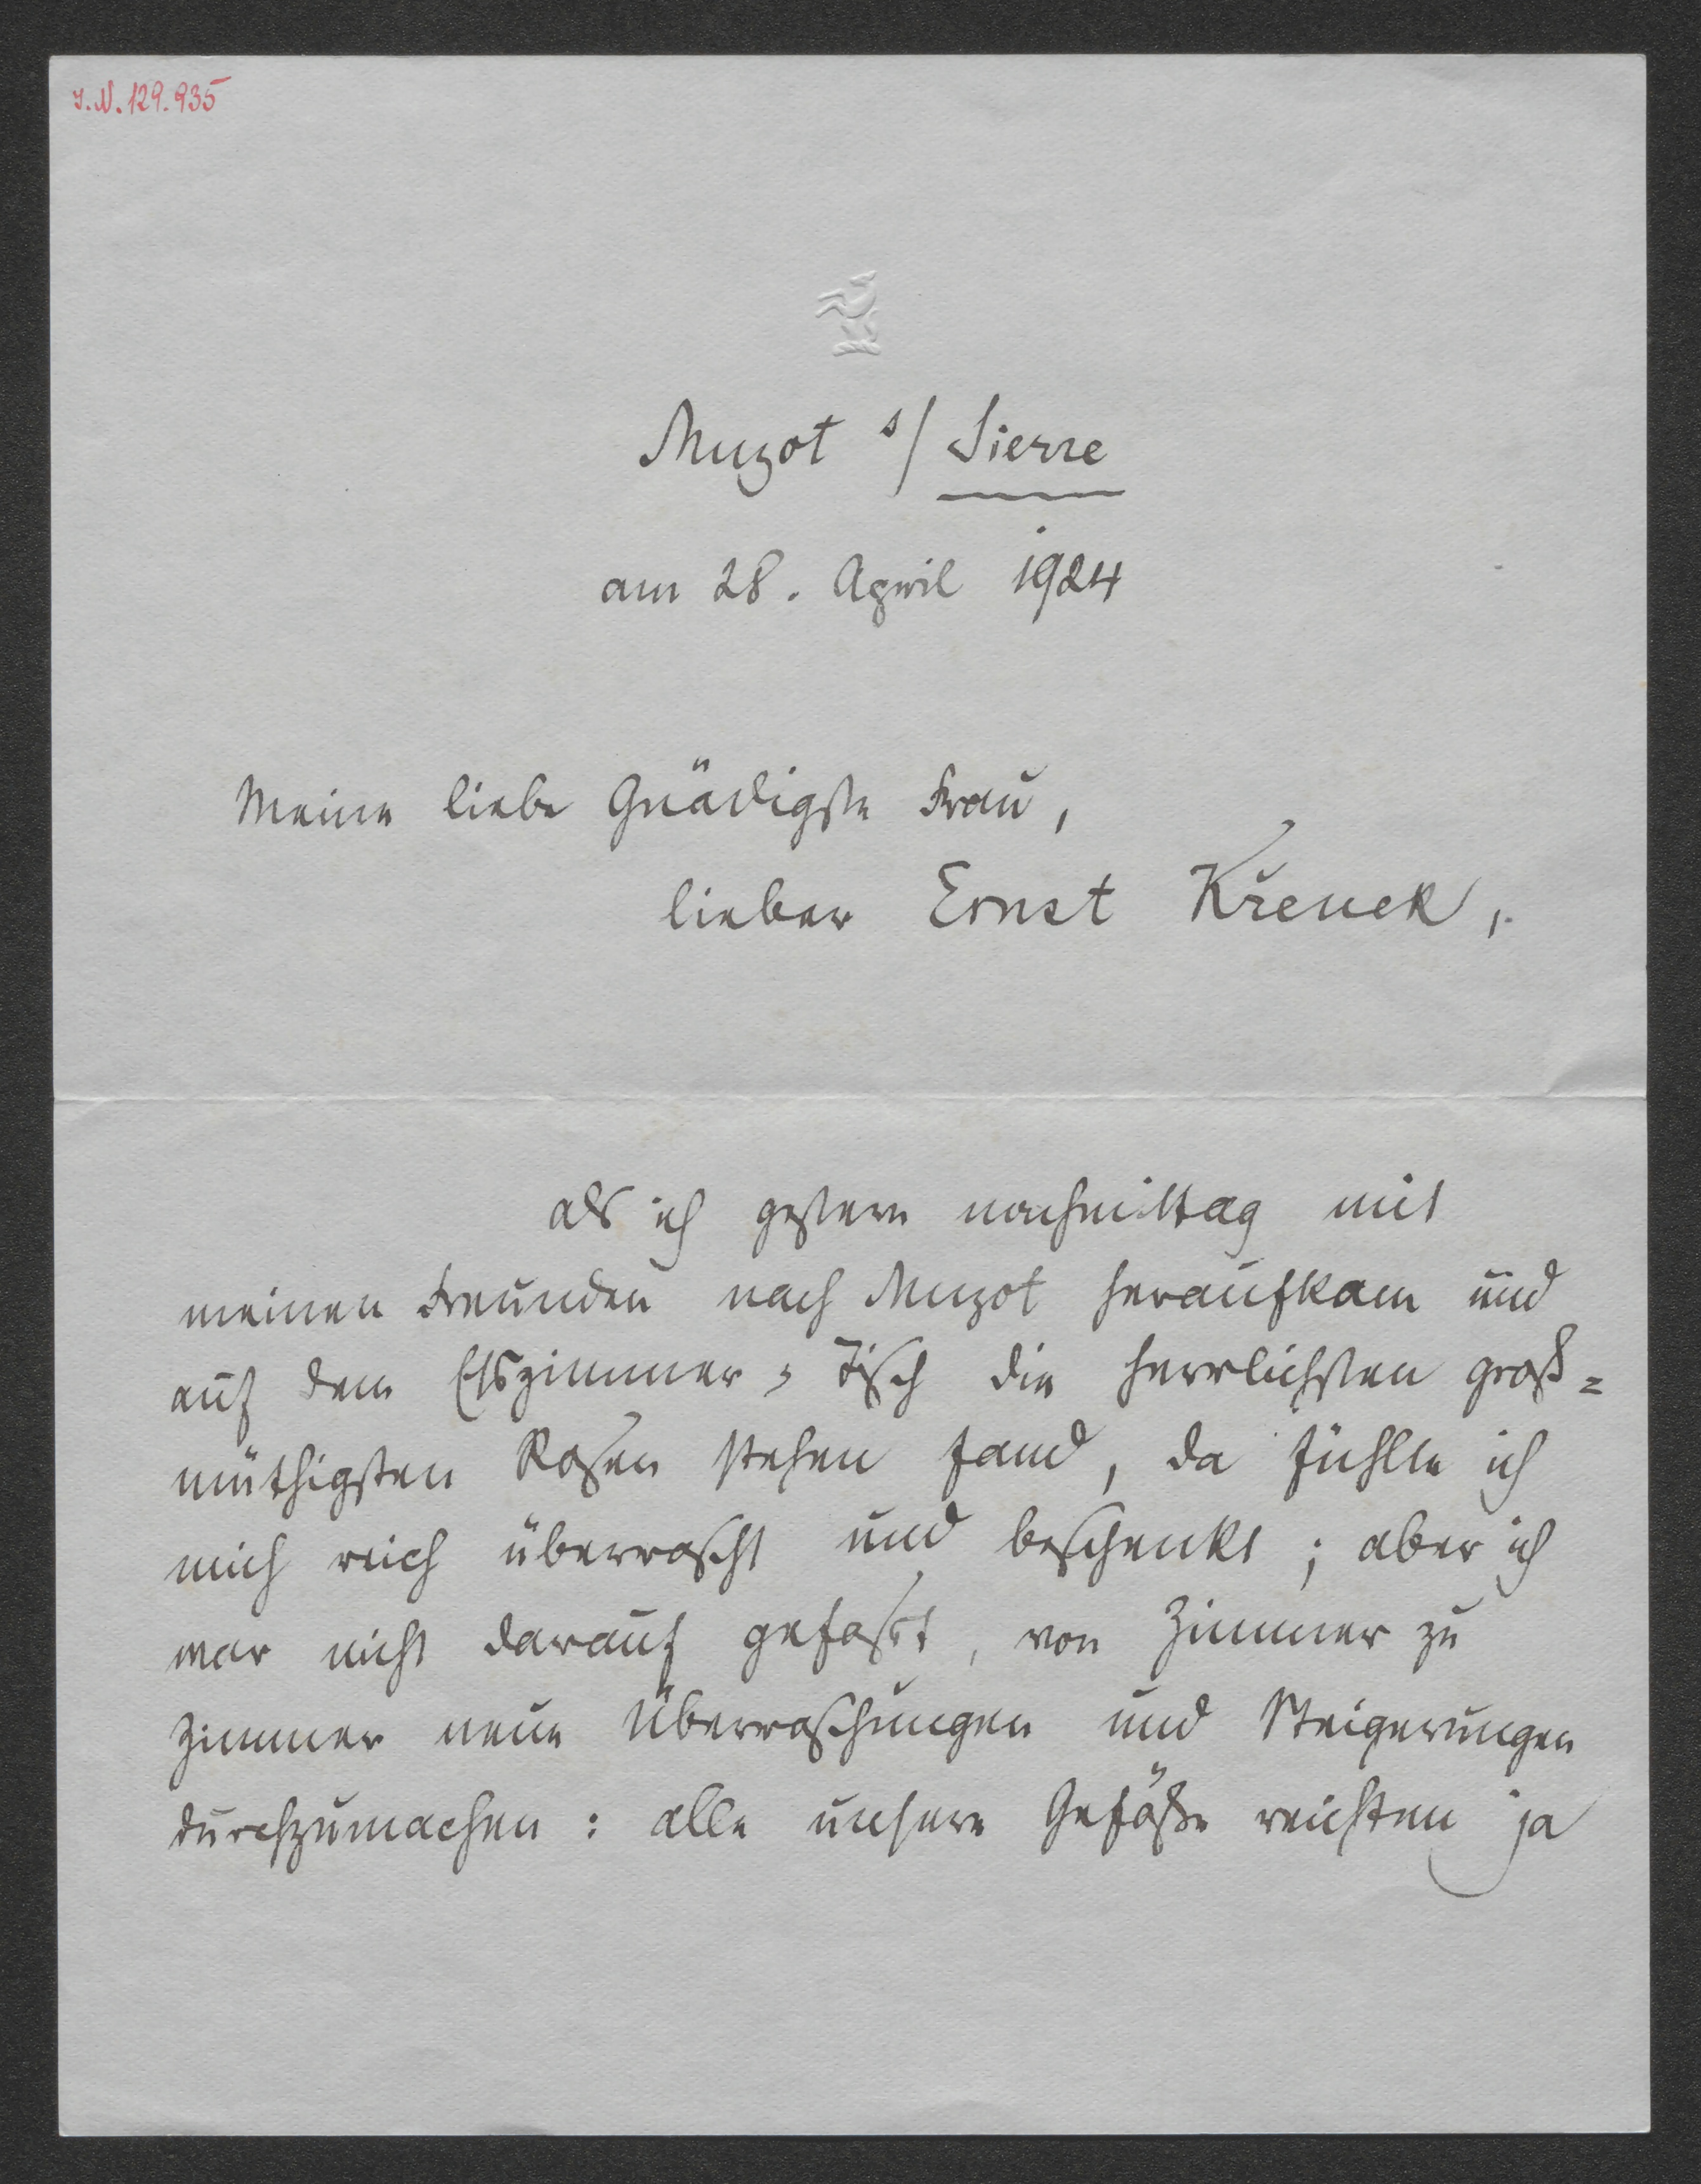 I.N.129.935
Muzot s/ Sierre
am 28. April 1924
Meine liebe Gnädigste Frau,
lieber Ernst Křenek,
als ich gestern nachmittag mit
meinen Freunden nach Muzot heraufkam und
auf dem Esszimmer-Tisch die herrlichsten groß=
müthigsten Rosen stehen fand, da fühlte ich
mich reich überrascht und beschenkt; aber ich
war nicht darauf gefaßt, von Zimmer zu
Zimmer neue Überraschungen und Steigerungen
durchzumachen: alle unsere Gefäße reichten ja